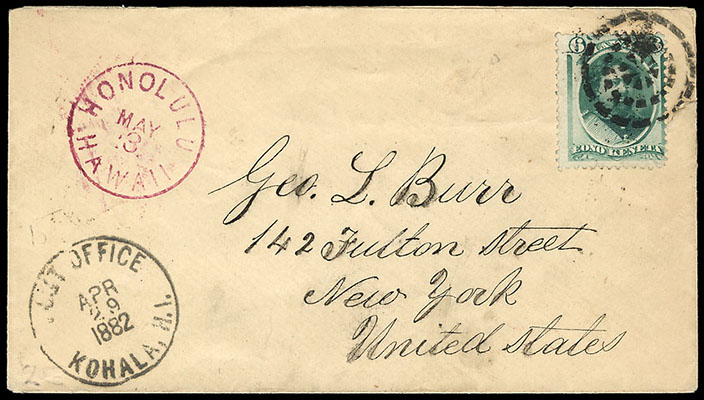 HONOLULU
MAY
3
HAWAII
POST OFFICE
APR
29
1882
KOHALA, H.I.
EONO KENETA
Geo. L. Burr
142 Fulton street
New York
United states